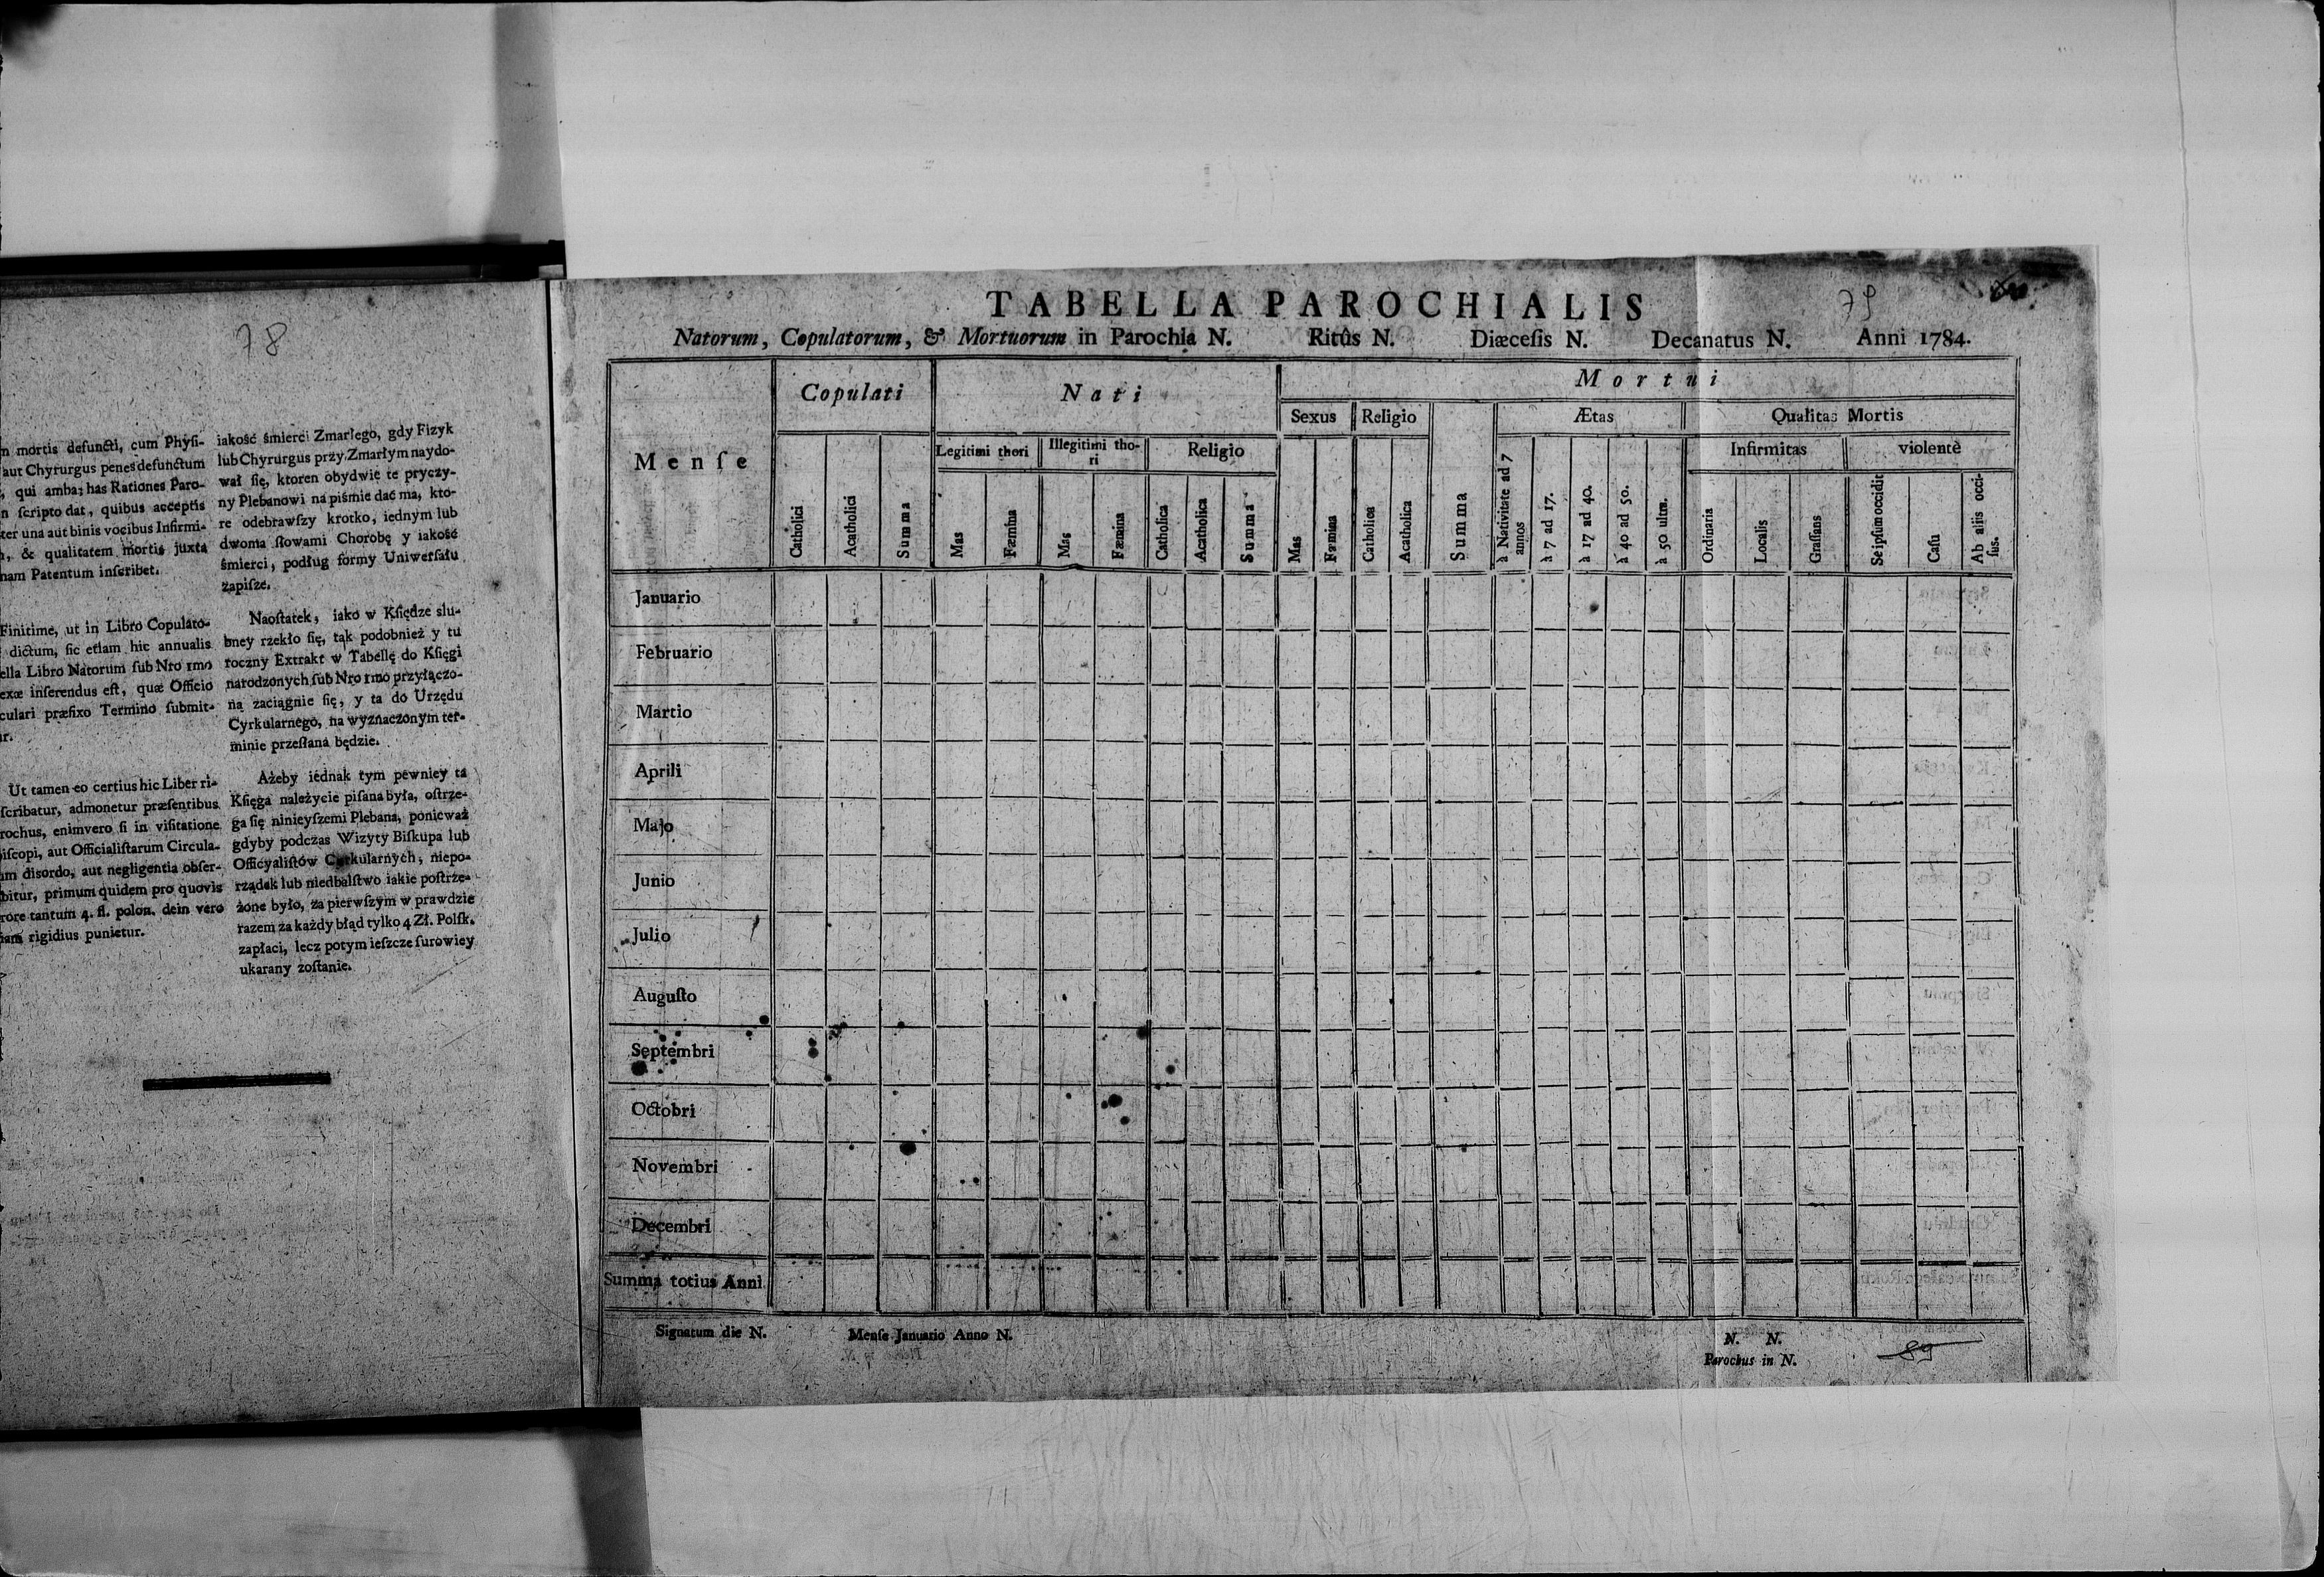 78
n mortis defuncti, cum Phyſi-
aut Chyrurgus penes defunctum
, qui ambas has Rationes Paro-
n ſcripto dat, quibus acceptis
ter una aut binis vocibus Infirmi-
, & qualitatem mortis juxta
nam Patentum inſeribet.
Finitime, ut in Libro Copulato-
dictum, ſic etiam hic annualis
ella Libro Natorum ſub Nro 1mo
exæ inferendus eſt, quæ Officio
culari præfixo Termino ſubmit-
ur.
Ut tamen eo certius hic Liber ri-
ſcribatur, admonetur præſentibus
rochus, enimvero ſi in viſitatione
piſcopi, aut Officialiſtarum Circula-
um disordo, aut negligentia obſer-
bitur, primum quidem pro quovis
rore tantum 4. fl. polon. dein vero
iam rigidius punietur.
iakość śmierci Zmarłego, gdy Fizyk
lub Chyrurgus przy Zmarłym naydo-
wał ſię, ktoren obydwie te pryczy-
ny Plebanowi na piśmie dać ma, kto-
re odebrawſzy krotko, iednym lub
dwoma ſłowami Chorobę y iakość
śmierci, podług formy Uniwerſału
zapiſze.
Naoſtatek, iako w Kſiędze slu-
bney rzekło ſię, tak podobnież y tu
roczny Extrakt w Tabellę do Kſięgi
narodzonych ſub Nro 1mo przyłączo-
ną zaciągnie ſię, y ta do Urzędu
Cyrkularnego, na wyznaczonym ter-
minie przeſłana będzie.
Ażeby iednak tym pewniey ta
Kſięga należycie piſana była, oſtrze-
ga ſię ninieyſzemi Plebana, ponieważ
gdyby podczas Wizyty Biſkupa lub
Officyaliſtów Cyrkularnych, niepo-
rządek lub niedbalſtwo iakie poſtrze-
żone było, za pierwſzym w prawdzie
razem za każdy błąd tylko 4 Zł. Polſk.
zapłaci, lecz potym ieſzcze ſurowiey
ukarany zoſtanie.
79
TABELLA PAROCHIALIS
Natorum, Copulatorum, & Mortuorum in Parochia N. Ritûs N. Diæceſis N. Decanatus N. Anni 1784.
Menſe
Copulati
Nati
Mortui
Sexus Religio Summa Ætas Qualitas Mortis
Legitimi thori Illegitimi tho-
ri
Religio
Infirmitas violentè
Catholici Acatholici Summa Mas Fæmina Mas Fæmina Catholica Acatholica Summa Mas Fæmina Catholica Acatholica
à Nativitate ad 7
annos
à 7 ad 17. à 17 ad 40. à 40 ad 50. à 50 ultra.
Ordinaria Localis Graſſans Seipſum occidit Caſu Ab aliis occi-
ſus.
Januario
Februario
Martio
Aprili
Majo
Junio
Julio
Auguſto
Septembri
Octobri
Novembri
Decembri
Summa totius Anni
Signatum die N. Menſe Januario Anno N. N. N.
Parochus in N.
89